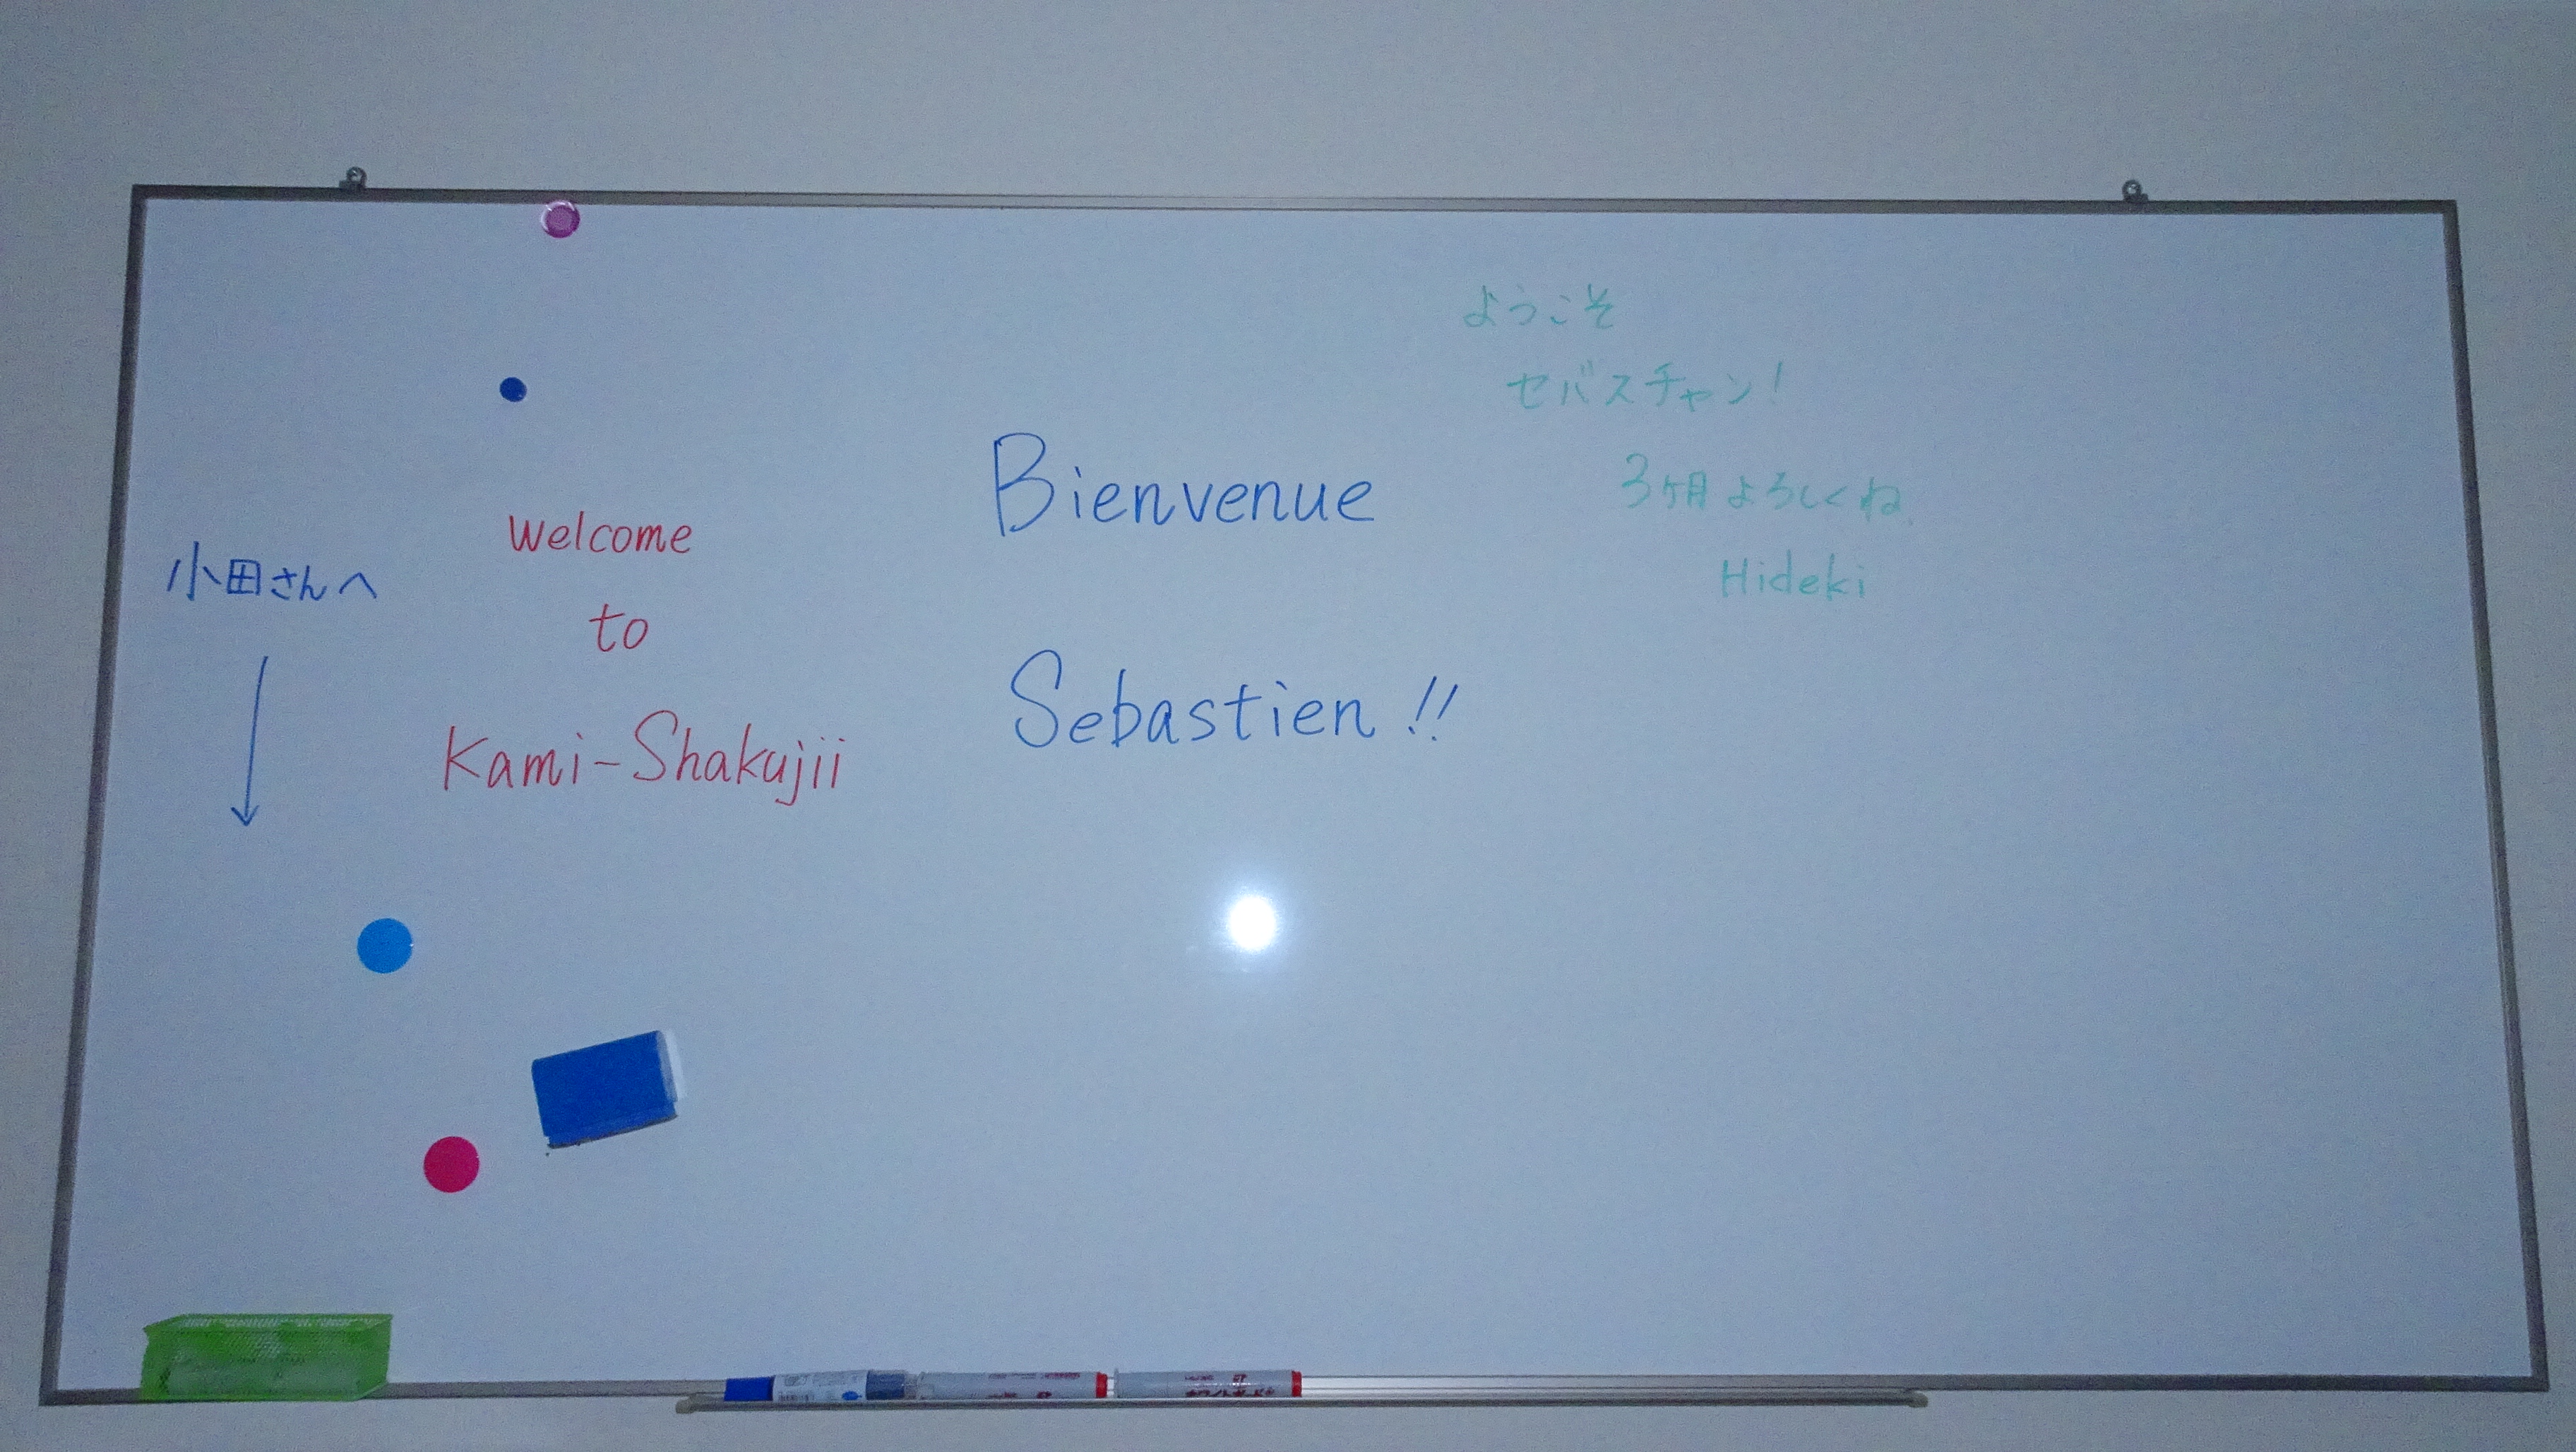 小田さんへ
Welcome
to
Kami-Shakujii
Bienvenue
Sebastien!!
ようこそ
セバスチャン!
3ヶ月よろしくね
Hideki